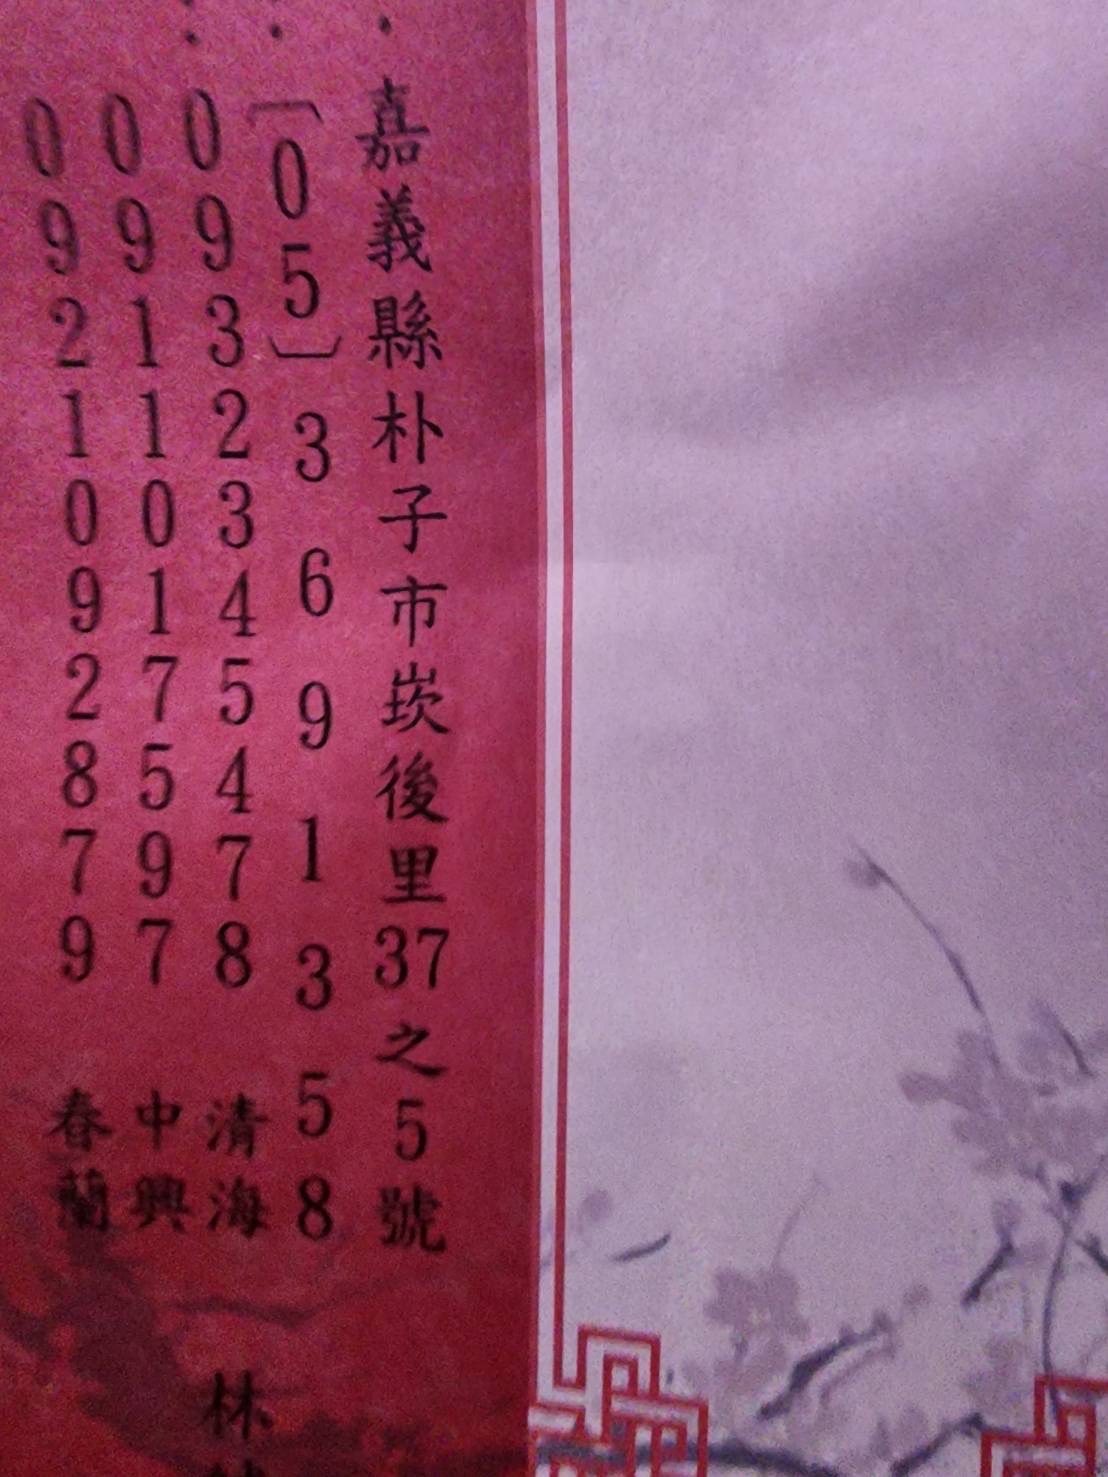 ：嘉義縣朴子市崁後里37之5號
：〔05〕3691358
：0932345478 清海 林
0911017597 中興
0921092879 春蘭